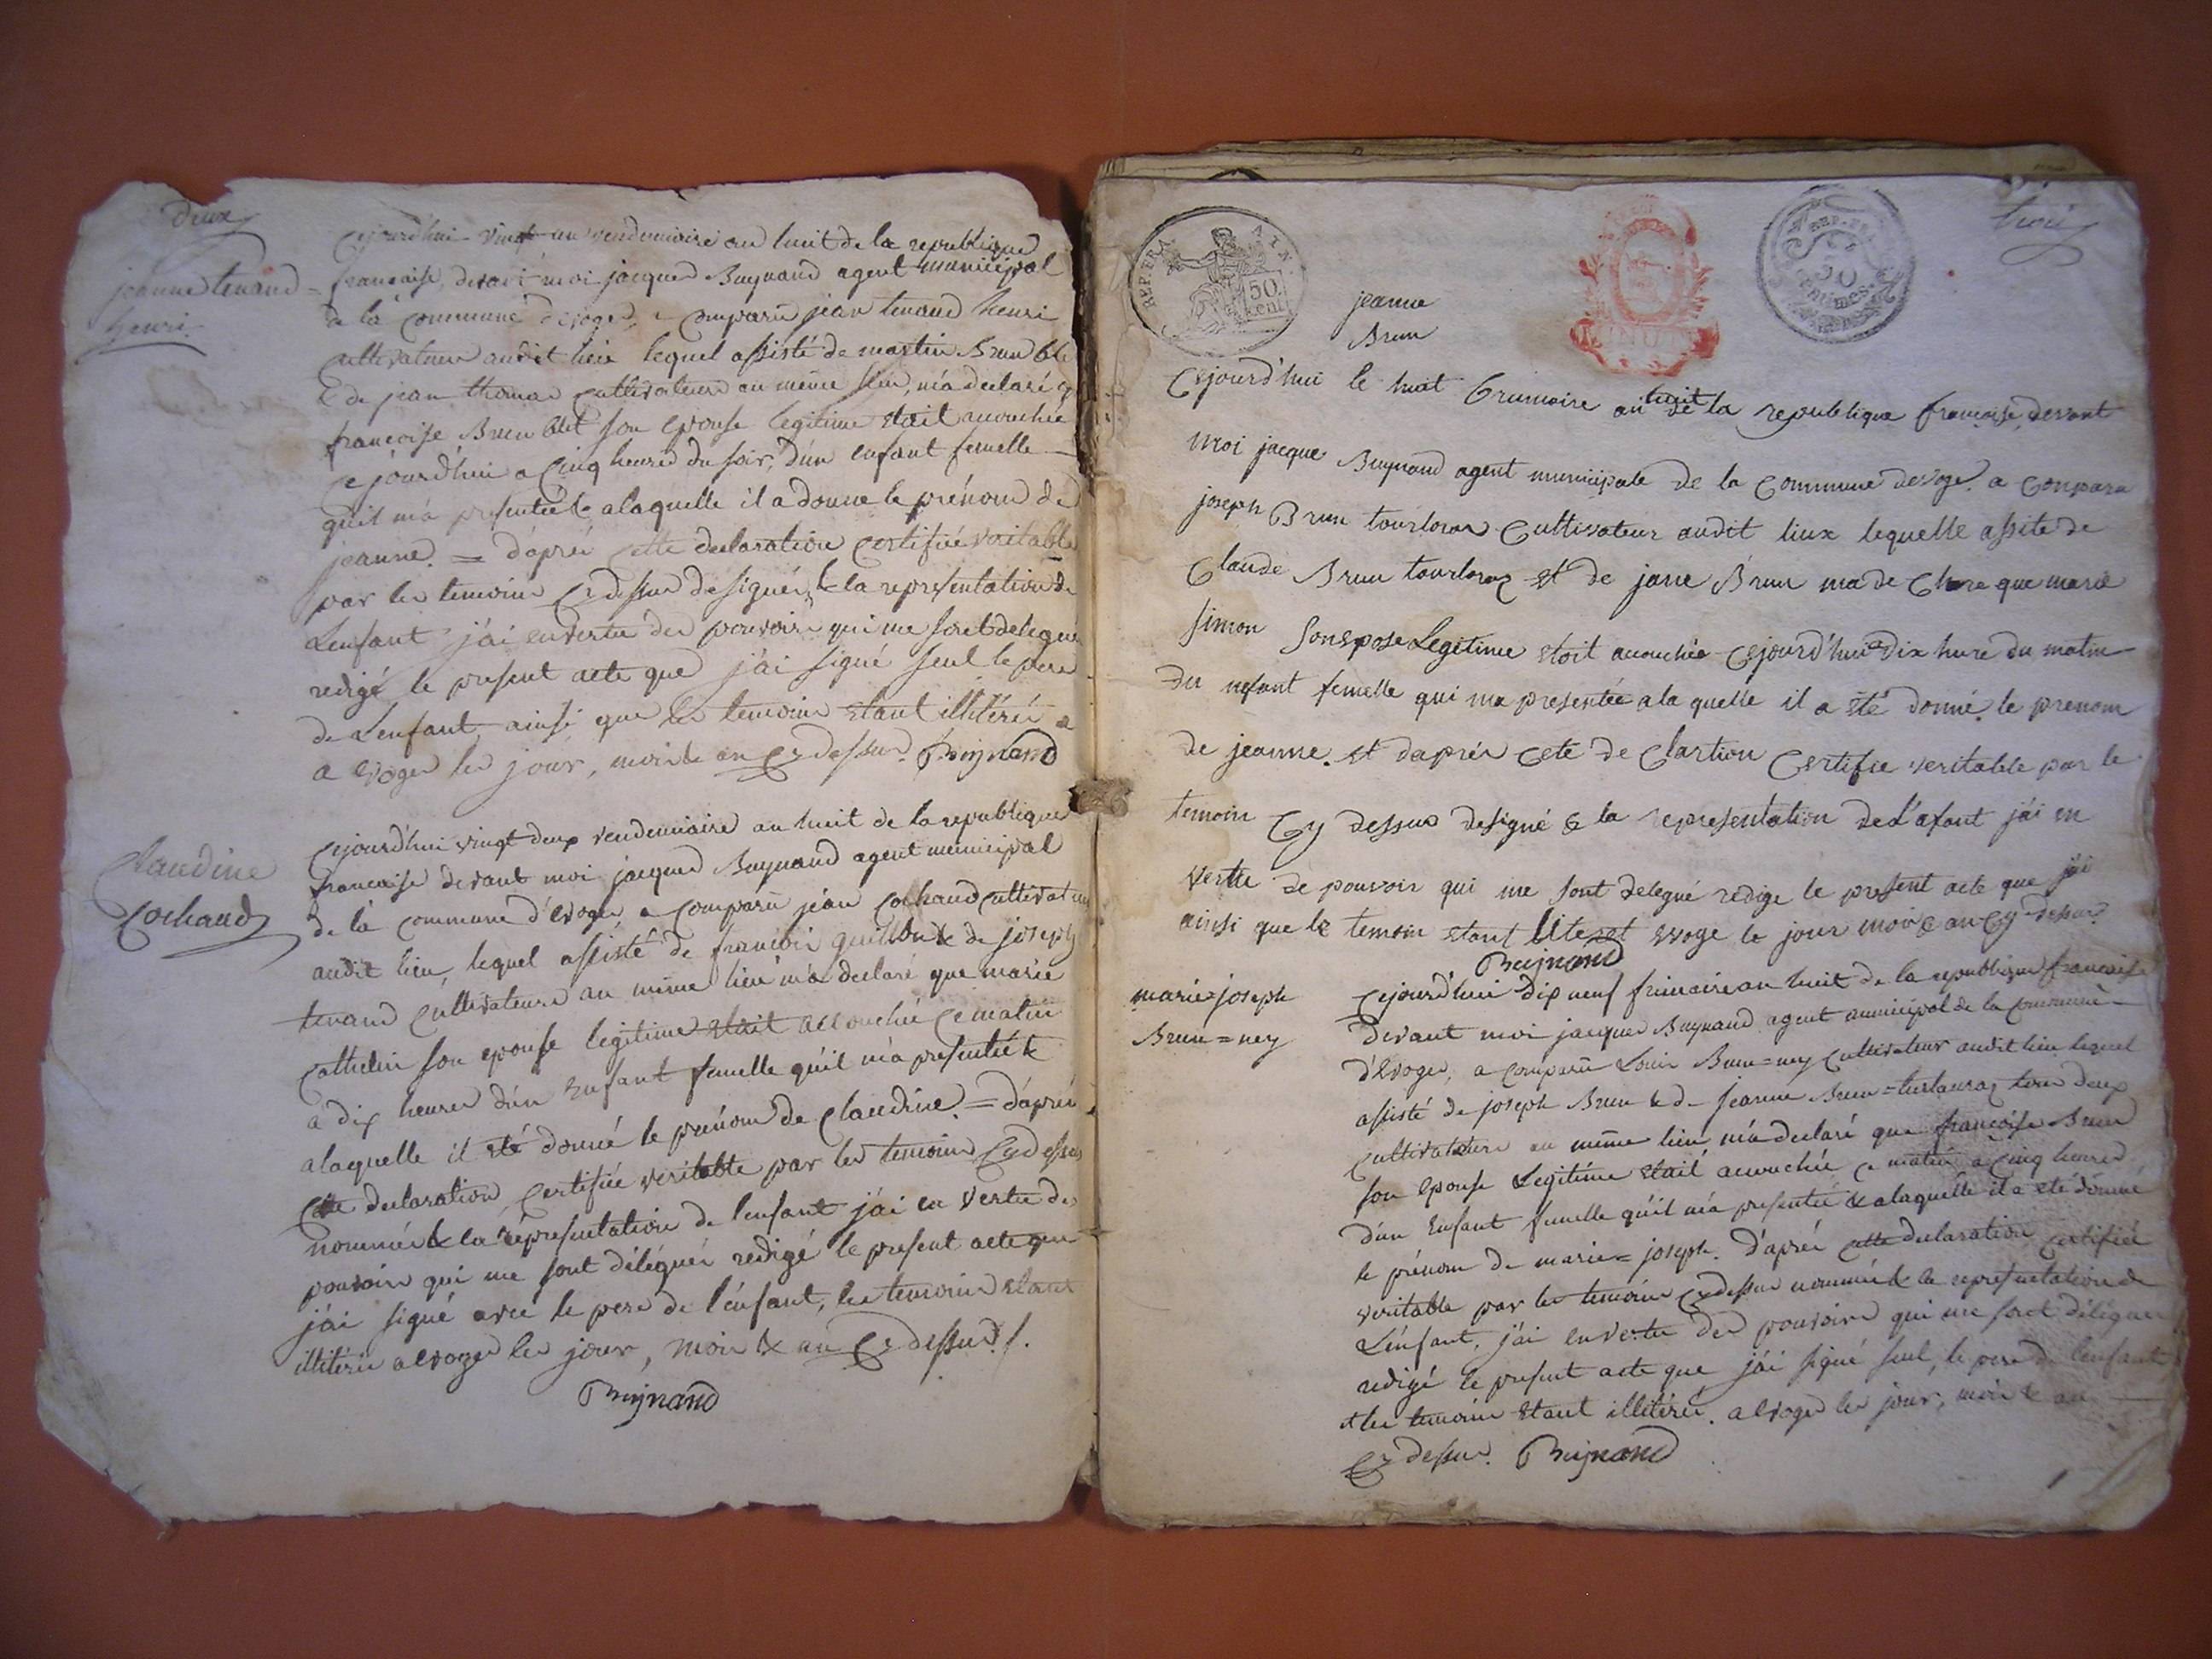 deux
jeanne tenand =
henri
Cejourd'hui vingt un vendemiaire an huit de la republique
francaise, devant moi jacques Buynand agent municipal
de la commune d'evoges, a comparu jean tenand henri
cultivateur audit lieu lequel assisté de martin Brun blet
& de jean thomas cultivateurs au même lieu, m'a declaré q
francoise Brun blet son epouse legitime était accouchée
cejourd'hui a cinq heures du soir, d'un enfant femelle
qu'il m'a presentée & alaquelle il a donne le prénom de
jeanne. = d'aprés cette declaration certifiée veritable
par les temoins cy dessus designés, & la representation de
L'enfant j'ai envertu des pouvoirs qui me sont delegués
redigé le present acte que j'ai signé seul le pere
de L'enfant ainsi que les temoins étant illitérés a
a evoges les jour, mois & an cy dessus. Buynand
Claudine
Cochaud
Cejourd'hui vingt deux vendemiaire an huit de la republique
francaise devant moi jacques Buynand agent municipal
de la commune d'evoges, a comparu jean Cochaud cultivateur
audit lieu, lequel assisté de francois guillon & de joseph
tenand cultivateurs au même lieu m'a declaré que marie
Cathelin son epouse legitime était accouchée ce matin
a dix heures d'un enfant femelle qu'il m'a presentée &
alaquelle il été donné le prénom de Claudine. = d'aprés
cette declaration, certifiée veritable par les temoins cy dessus
nommés & la représentation de l'enfant j'ai en vertu des
pouvoirs qui me sont délégués redigé le present acte que
j'ai signé avec le pere de l'enfant, les temoins étant
illitérés a evoges les jour, mois & an cy dessus./.
Buynand
REP. FRA
50 cent
50 centimes
trois
jeanne
Brun
Cejourd'hui le huit brumaire an huit de la republique francaise, devant
moi jacque Buynand agent municipale de la Commune devoge. a Conpara
joseph Brun tourloras Cultivateur audit liux lequelle assite de
Claude Brun tourloraz et de jane Brun ma de Clare que marie
simon son epose Legitime etoit acouchée Cejourd'hui a dix hure du matin
du nefant femelle qui ma presentée a la quelle il a été donné le prenom
de jeanne. et daprés Cete de Clartion Certifie veritable par le
temoin Cy dessus designé & la representation de L'afant j'ai en
vertu de pouvoir qui me sont delegué redige le present acte que j'ai
ainsi que le temoin etant evoge le jour mois & an Cy dessus
Buynand
marie-joseph
Brun = ney
Cejourd'hui dix neuf frimaire an huit de la republique francaise
devant moi jacques Buynand agent municipal de la commune
d'Evoges, a comparu Louis Brun = ney cultivateur audit lieu lequel
assisté de joseph Brun & de jeanne Brun = turlauraz tous deux
cultivateurs au même lieu m'a declaré que françoise Brun
son epouse Legitime était accouchée ce matin a cinq heures
d'un Enfant femelle qu'il m'a presentée & alaquelle il a été donné
le prénom de marie = joseph. d'aprés cette declaration certifiée
veritable par les temoins cy dessus nommés & la representation de
L'enfant, j'ai envertu des pouvoirs qui me sont délégués
redigé le present acte que j'ai signé seul, le pere de l'enfant
et les temoins étant illitérés. a Evoges les jour, mois & an
cy dessus. Buynand